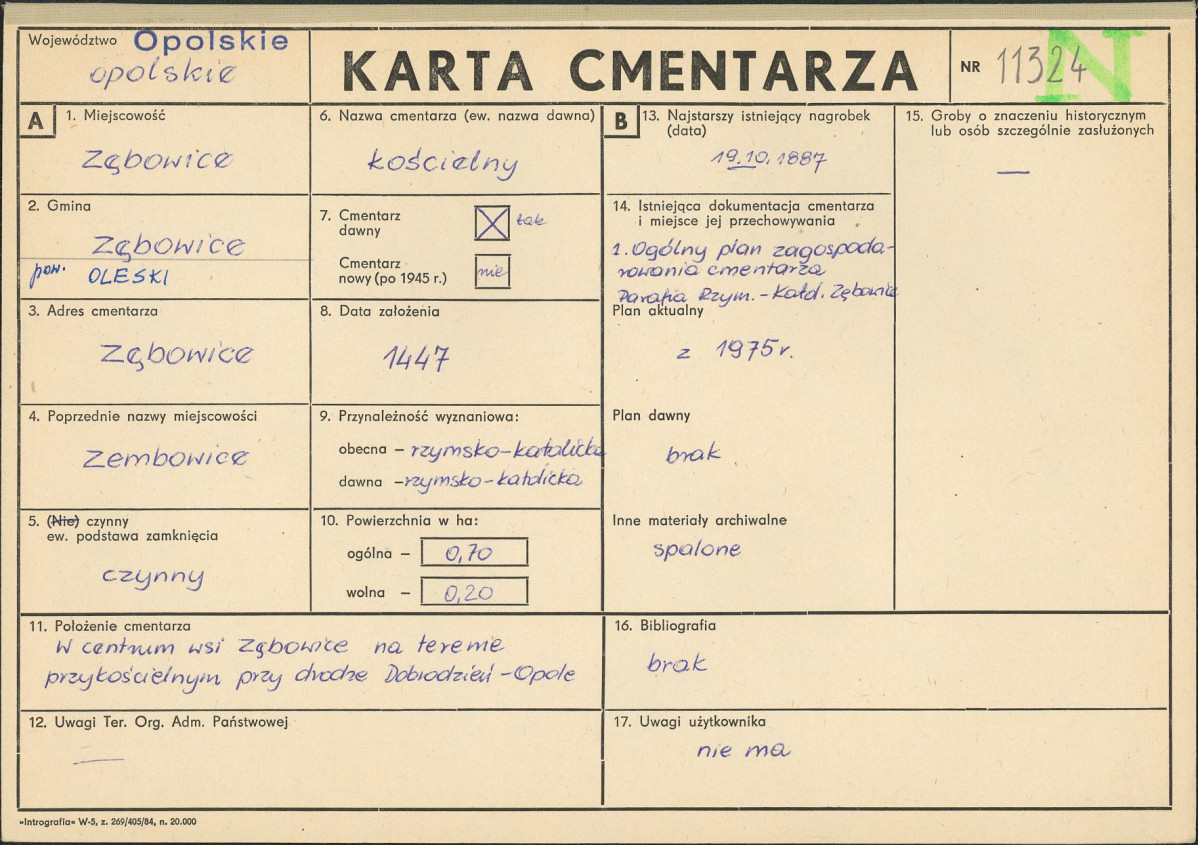 Województwo Opolskie
opolskie
KARTA CMENTARZA
NR 11324
N
A
1. Miejscowość
Zębowice
2. Gmina
Zębowice
pow. OLESKI
3. Adres cmentarza
Zębowice
4. Poprzednie nazwy miejscowości
Zembowice
5. (Nie) czynny
ew. podstawa zamknięcia
czynny
6. Nazwa cmentarza (ew. nazwa dawna)
kościelny
7. Cmentarz
dawny
tak
Cmentarz
nowy (po 1945 r.)
nie
8. Data założenia
1447
9. Przynależność wyznaniowa:
obecna – rzymsko-katolicka
dawna – rzymsko-katolicka
10. Powierzchnia w ha:
ogólna – 0,70
wolna – 0,20
11. Położenie cmentarza
W centrum wsi Zębowice na terenie
przykościelnym przy drodze Dobrodzień - Opole
12. Uwagi Ter. Org. Adm. Państwowej
—
B
13. Najstarszy istniejący nagrobek
(data)
19.10.1887
14. Istniejąca dokumentacja cmentarza
i miejsce jej przechowywania
1. Ogólny plan zagospoda-
rowania cmentarza
Parafia Rzym.-Katol. Zębowice
Plan aktualny
z 1975 r.
Plan dawny
brak
Inne materiały archiwalne
spalone
15. Groby o znaczeniu historycznym
lub osób szczególnie zasłużonych
—
16. Bibliografia
brak
17. Uwagi użytkownika
nie ma
»Intrografia« W-5, z. 269/405/84, n. 20.000